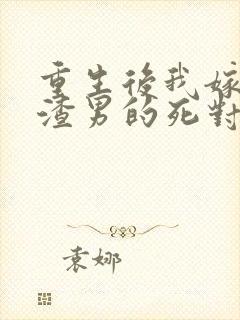 重生後我嫁
渣男的死對
袁娜